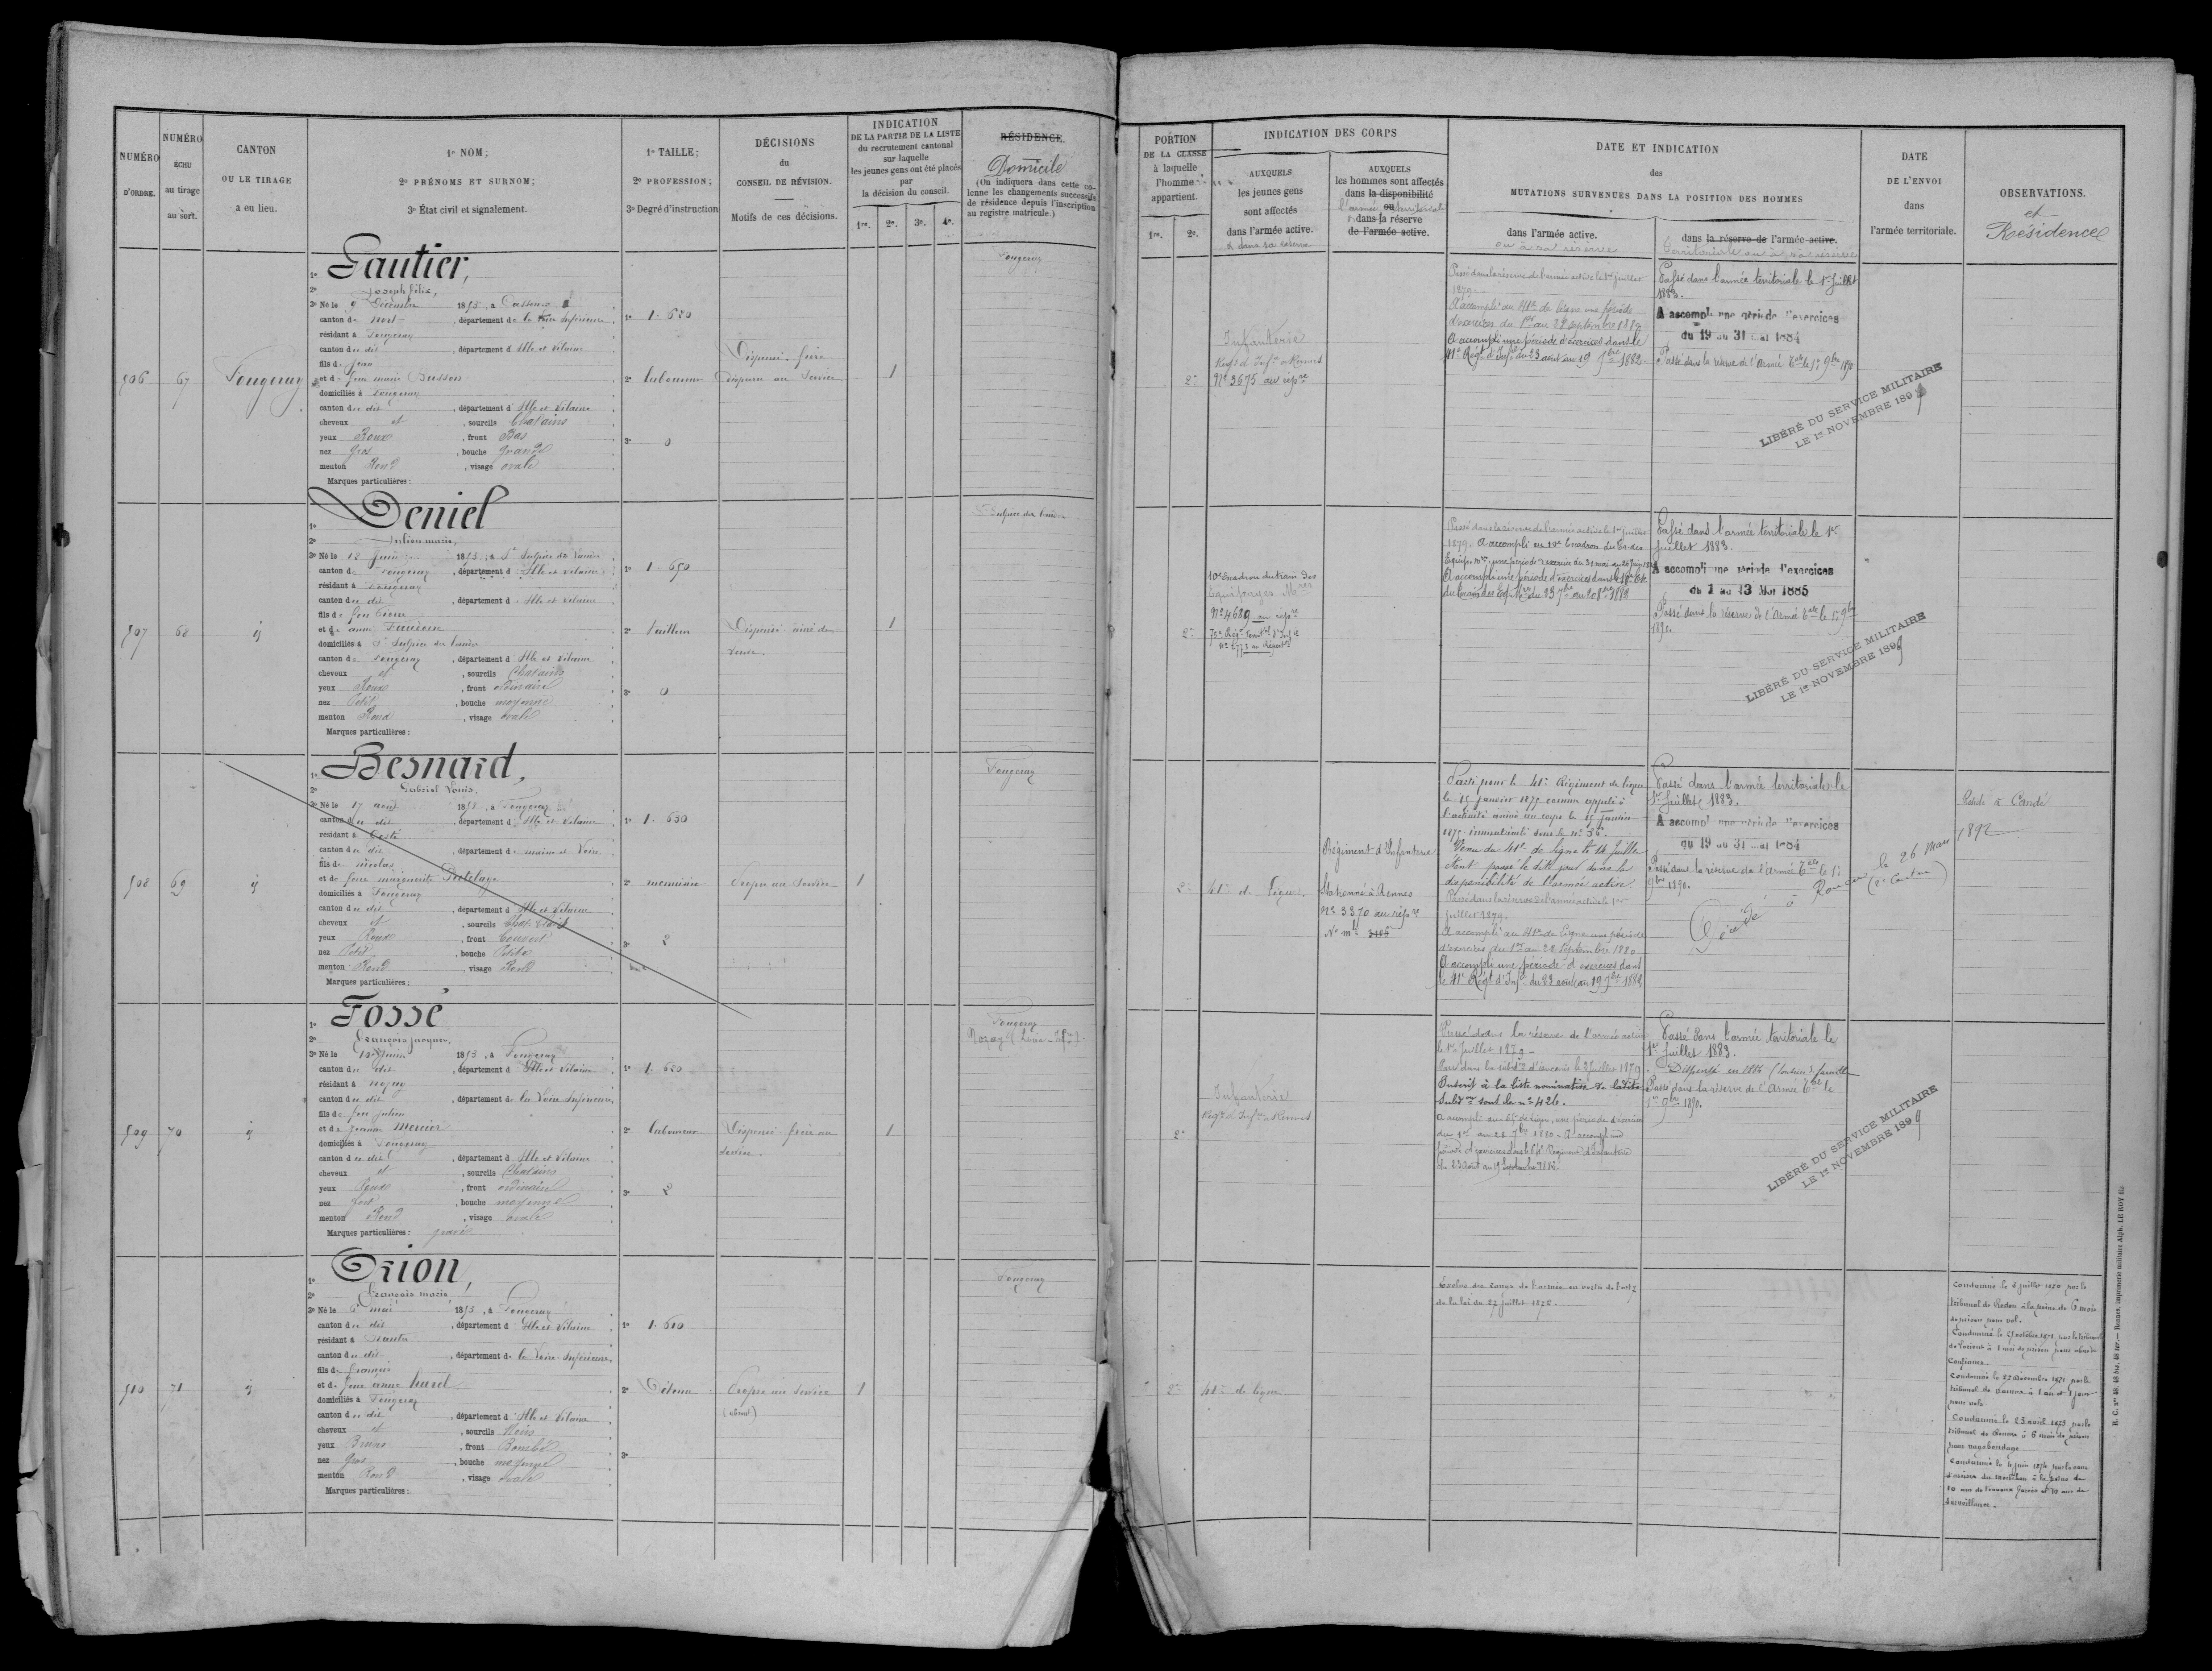 NUMÉRO D'ORDRE.
NUMÉRO ÉCHU au tirage au sort.
CANTON OU LE TIRAGE a eu lieu.
1º NOM;
2º PRÉNOMS ET SURNOM;
3º État civil et signalement.
1º TAILLE;
2º PROFESSION;
3º Degré d'instruction
DÉCISIONS du CONSEIL DE RÉVISION.
Motifs de ces décisions.
INDICATION
DE LA PARTIE DE LA LISTE
du recrutement cantonal
sur laquelle
les jeunes gens ont été placés
par
la décision du conseil.
1re. 2e. 3e. 4e.
RÉSIDENCE.
Domicile
(On indiquera dans cette co-
lonne les changements successifs
de résidence depuis l'inscription
au registre matricule.)
506
67
Fougeray
1º Gautier,
2º Joseph Félix,
3º Né le 9 Décembre 1853, à
canton de Nort, département de la Loire Inférieure
résidant à Fougeray
canton du dit, département d'Ille et Vilaine
fils de Jean
et de feue marie Busson
domiciliés à Fougeray
canton du dit, département d'Ille et Vilaine
cheveux et, sourcils Chatains
yeux Roux, front Bas
nez gros, bouche grande
menton Rond, visage ovale
Marques particulières:
1º 1.620
2º laboureur
3º 0
Dispensé - frère
au Service
1
Fougeray
507
68
id
1º Deniel
2º Julien marie,
3º Né le 12 Juin 1853, à St Sulpice des landes
canton de Fougeray, département d'Ille et Vilaine
résidant à Fougeray
canton du dit, département d'Ille et Vilaine
fils de feu Pierre
et de anne
domiciliés à St Sulpice des landes
canton de Fougeray, département d'Ille et Vilaine
cheveux et, sourcils Chatains
yeux Roux, front ordinaire
nez Petit, bouche moyenne
menton Rond, visage ovale
Marques particulières:
1º 1.650
2º tailleur
3º 0
Dispensé ainé de
veuve.
1
St Sulpice des landes
508
69
id
1º Besnard,
2º Gabriel Louis.
3º Né le 17 août 1853, à Fougeray
canton du dit, département d'Ille et Vilaine
résidant à
canton du dit, département de maine et Loire
fils de nicolas
et de feue marguerite
domiciliés à Fougeray
canton du dit, département d'Ille et Vilaine
cheveux et, sourcils Chat. clairs
yeux Roux, front Couvert
nez Petit, bouche Petite
menton Rond, visage Rond
Marques particulières:
1º 1.630
2º menuisier
3º 2
Propre au Service
1
Fougeray
509
70
id
1º Fossé
2º François Jacques,
3º Né le 10 Juin 1853, à Fougeray
canton du dit, département d'Ille et Vilaine
résidant à nozay
canton du dit, département de la Loire Inférieure
fils de feu Julien
et de Jeanne Mercier
domiciliés à Fougeray
canton du dit, département d'Ille et Vilaine
cheveux et, sourcils Chatains
yeux Roux, front ordinaire
nez fort, bouche moyenne
menton Rond, visage ovale
Marques particulières: gravé
1º 1.620
2º laboureur
3º 2
Dispensé frère au
service.
1
Fougeray
Nozay (Loire-Infre).
510
71
id
1º Orion,
2º François marie,
3º Né le 6 mai 1853, à Fougeray
canton du dit, département d'Ille et Vilaine
résidant à nantes
canton du dit, département de la Loire Inférieure
fils de françois
et de feue anne harel
domiciliés à Fougeray
canton du dit, département d'Ille et Vilaine
cheveux et, sourcils Noirs
yeux Bruns, front Bombé
nez gros, bouche moyenne
menton Rond, visage ovale
Marques particulières:
1º 1.610
2º Détenu
3º
Propre au service
(absent)
1
Fougeray
PORTION
DE LA CLASSE
à laquelle
l'homme
appartient.
1re. 2e.
INDICATION DES CORPS
AUXQUELS
les jeunes gens
sont affectés
dans l'armée active.
& dans sa réserve
AUXQUELS
les hommes sont affectés
dans la disponibilité
ou
l'armée territoriale
& dans la réserve
de l'armée active.
DATE ET INDICATION
des
MUTATIONS SURVENUES DANS LA POSITION DES HOMMES
dans l'armée active.
ou à sa réserve
dans la réserve de l'armée active.
territoriale ou à sa réserve
DATE
DE L'ENVOI
dans
l'armée territoriale.
OBSERVATIONS.
et
Résidence
2e
Infanterie
Regt d'Infie à Rennes
Nº 3675 au répre
Passé dans la réserve de l'armée active le 1er juillet
1879.
A accompli au 41e de ligne une période
d'exercices du 1er au 28 septembre 1880
A accompli une période d'exercices dans le
41e Régt d'Infie du 23 août au 19 7bre 1882.
Passé dans l'armée territoriale le 1er Juillet
1883.
A accompli une période d'exercices
du 19 au 31 mai 1884
Passé dans la réserve de l'Armée tale le 1er 9bre 1890
LIBÉRÉ DU SERVICE MILITAIRE
LE 1er NOVEMBRE 189
2e
10e Escadron du train des
Equipages Mres
Nº 4689 au répre
75e Régt territal d'Infie
Nº 2773 au Répertre
Passé dans la réserve de l'armée active le 1er juillet
1879. A accompli au 10e Escadron du train des
Equip. mres une période d'exercices du 31 mai au
A accompli une période d'exercices dans le 10e
Passé dans l'armée territoriale le 1er
Juillet 1883.
A accompli une période d'exercices
du 1 au 13 Mai 1885
Passé dans la réserve de l'Armée tale le 1er 9bre
1890.
LIBÉRÉ DU SERVICE MILITAIRE
LE 1er NOVEMBRE 1899
2e
41e de ligne.
Régiment d'Infanterie
Stationné à Rennes
Nº 3370 au répre
Nº mle
Parti pour le 41e Régiment de ligne
le 15 janvier 1875 comme appelé à
l'activité arrivé au corps le 15 janvier
1875 immatriculé sous le nº
Venu du 41e de ligne le 14 Juillet
étant passé le dit jour dans la
disponibilité de l'armée active
Passé dans la réserve de l'armée active le 1er
juillet 1879.
A accompli au 41e de Ligne une période
d'exercices du 1er au 28 Septembre 1880
A accompli une période d'exercices dans
le 41e Régt d'Infie du 23 août au 19 7bre 1882
Passé dans l'armée territoriale le
1er Juillet 1883.
A accompli une période d'exercices
du 19 au 31 mai 1884
Passé dans la réserve de l'Armée tale le 1er
9bre 1890.
Décédé à le 26 Mars 1892
(2e Canton)
Réside à Candé
2e
Infanterie
Regt d'Infie à Rennes
Passé dans la réserve de l'armée active
le 1er Juillet 1879 -
Passé dans la subdon d'Ancenis le 2 Juillet 1879
Inscrit à la liste nominative de ladite
Subdon sous le nº 426.
A accompli au 65e de ligne, une période d'exercices
du 1er au 28 7bre 1880 - A accompli une
période d'exercices dans le Régiment d'Infanterie
du 23 août au 19 Septembre 1882.
Passé dans l'armée territoriale le
1er Juillet 1883.
Dispensé en 1884 (soutien de famille)
Passé dans la réserve de l'Armée tale le
1er 9bre 1890.
LIBÉRÉ DU SERVICE MILITAIRE
LE 1er NOVEMBRE 1899
2e
41e de ligne
Exclus des rangs de l'armée en vertu de l'art 7
de la loi du 27 juillet 1872.
Condamné le juillet 1870 par le
tribunal de Redon à la peine de 6 mois
de prison pour vol.
Condamné le octobre 1871 par le tribunal
de Lorient à 1 mois de prison pour abus de
Confiance.
Condamné le 27 décembre 1871 par le
tribunal de à 1 an et 1 jour
pour vols.
Condamné le 23 avril 1873 par le
tribunal de à 6 mois de prison
pour vagabondage
Condamné le juin 1874 par la cour
d'assises du Morbihan à la peine de
10 ans de travaux forcés et 10 ans de
surveillance.
R. C. Nos 48, 48 bis, 48 ter. — Rennes, imprimerie militaire Alph. LE ROY fils